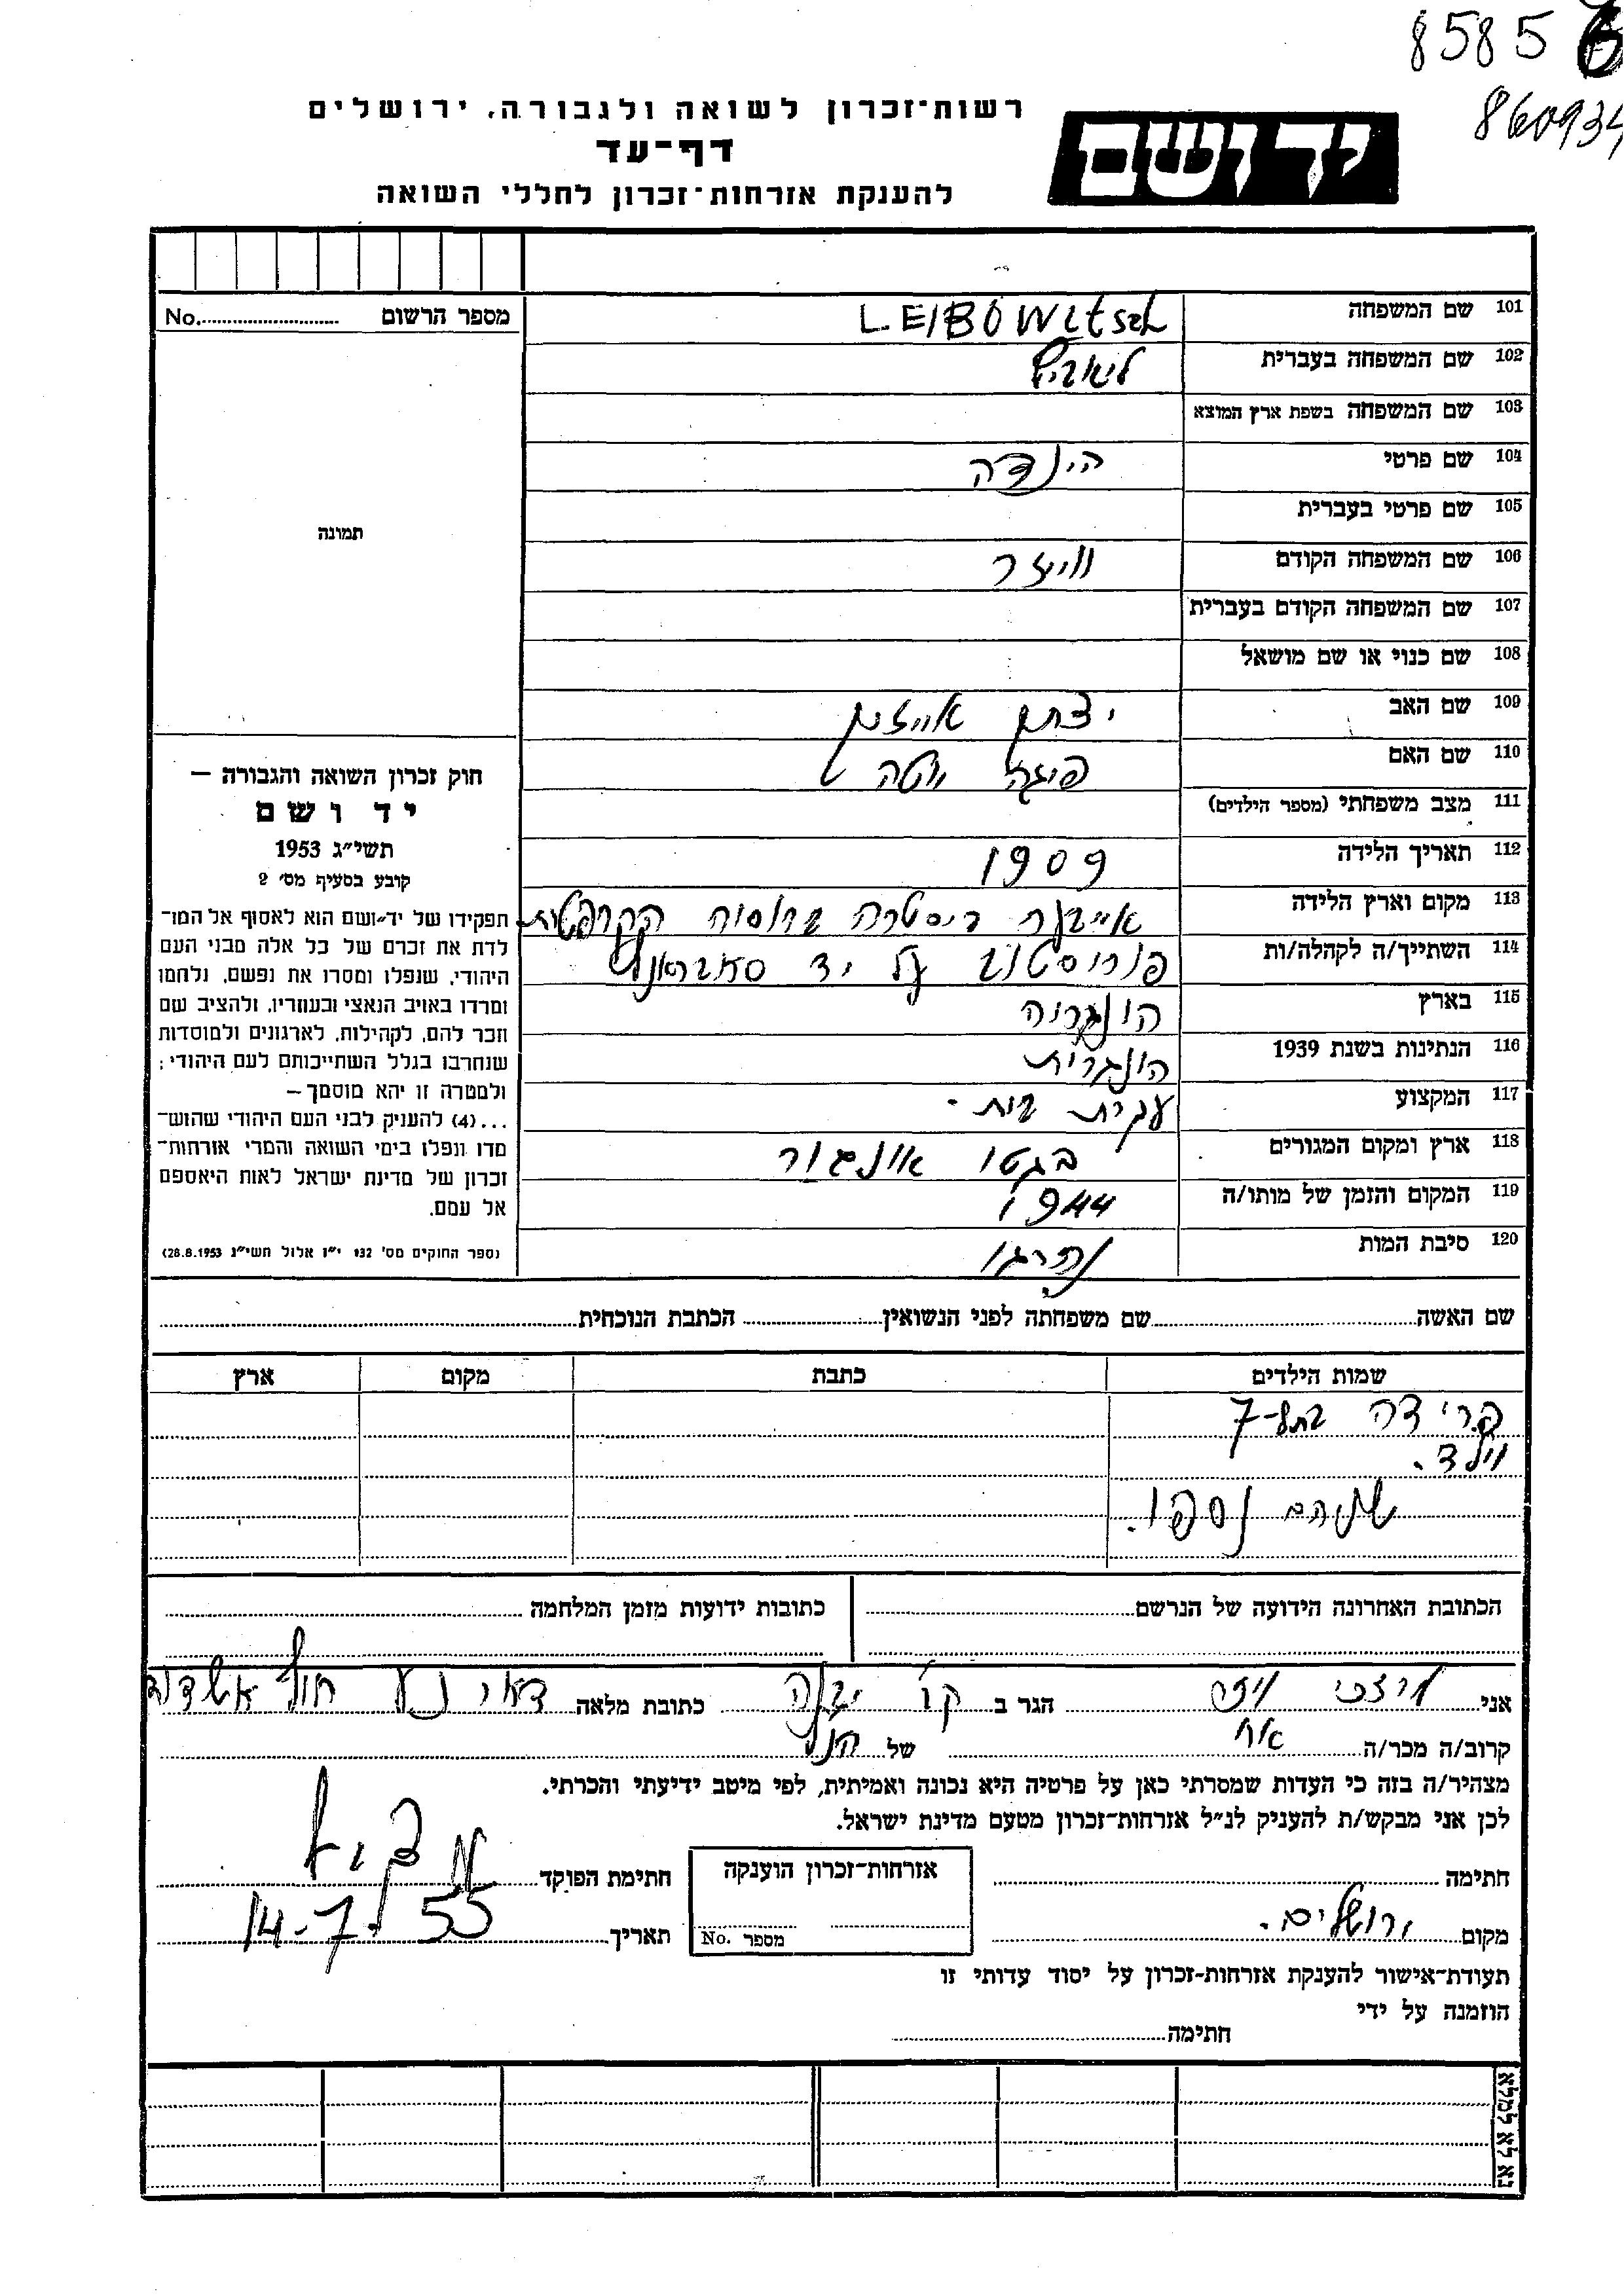 8585
860934
רשות־זכרון לשואה ולגבורה, ירושלים
דף־עד
להענקת אזרחות־זכרון לחללי השואה
יד ושם
מספר הרשום No.
תמונה
חוק זכרון השואה והגבורה —
יד ושם
תשי״ג 1953
קובע בסעיף מס׳ 2
תפקידו של יד־ושם הוא לאסוף אל המו־
לדת את זכרם של כל אלה מבני העם
היהודי, שנפלו ומסרו את נפשם, נלחמו
ומרדו באויב הנאצי ובעוזריו, ולהציב שם
וזכר להם, לקהילות, לארגונים ולמוסדות
שנחרבו בגלל השתייכותם לעם היהודי;
ולמטרה זו יהא מוסמך —
...(4) להעניק לבני העם היהודי שהוש־
מדו ונפלו בימי השואה והמרי אזרחות־
זכרון של מדינת ישראל לאות היאספם
אל עמם.
(ספר החוקים מס׳ 132 י״ז אלול תשי״ג 28.8.1953)
101 שם המשפחה LEIBOWItsch
102 שם המשפחה בעברית
103 שם המשפחה בשפת ארץ המוצא
104 שם פרטי הינדה
105 שם פרטי בעברית
106 שם המשפחה הקודם ווייזר
107 שם המשפחה הקודם בעברית
108 שם כנוי או שם מושאל
109 שם האב יצחק אייזיק
110 שם האם פיגה יוטה
111 מצב משפחתי (מספר הילדים)
112 תאריך הלידה 1909
113 מקום וארץ הלידה ביסטרה ברוסיה הקרפטית
114 השתייך/ה לקהלה/ות על יד
115 בארץ הונגריה
116 הנתינות בשנת 1939 הונגרית
117 המקצוע עקרת בית.
118 ארץ ומקום המגורים בגטו אונגור
119 המקום והזמן של מותו/ה 1944
120 סיבת המות נהרגו
שם האשה שם משפחתה לפני הנשואין הכתבת הנוכחית
שמות הילדים כתבת מקום ארץ
פרידה בת-7
וילד.
שניהם נספו.
הכתובת האחרונה הידועה של הנרשם כתובות ידועות מזמן המלחמה
אני מרדכי הגר ב יבנה כתובת מלאה דאר נע חוף אשדוד
קרוב/ה מכר/ה אח של הנ״ל
מצהיר/ה בזה כי העדות שמסרתי כאן על פרטיה היא נכונה ואמיתית, לפי מיטב ידיעתי והכרתי.
לכן אני מבקש/ת להעניק לנ״ל אזרחות־זכרון מטעם מדינת ישראל.
חתימה אזרחות־זכרון הוענקה חתימת הפוקד
מקום ירושלים. מספר No. תאריך 14-7-55
תעודת־אישור להענקת אזרחות־זכרון על יסוד עדותי זו
הוזמנה על ידי
חתימה
נא לא למלא